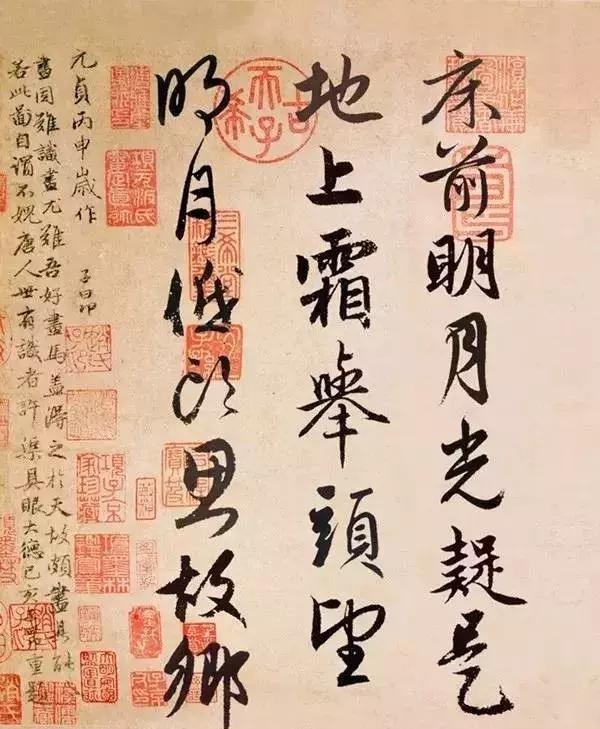 床前明月光疑是
地上霜舉頭望
明月低頭思故鄉
元貞丙申歲作 子昂
畫固難識畫尤難吾好畫馬盖得之於天故頗盡其能
若此圖自謂不愧唐人世有識者許渠具眼大德己亥子昂重題
古希天子
項子京家珍藏